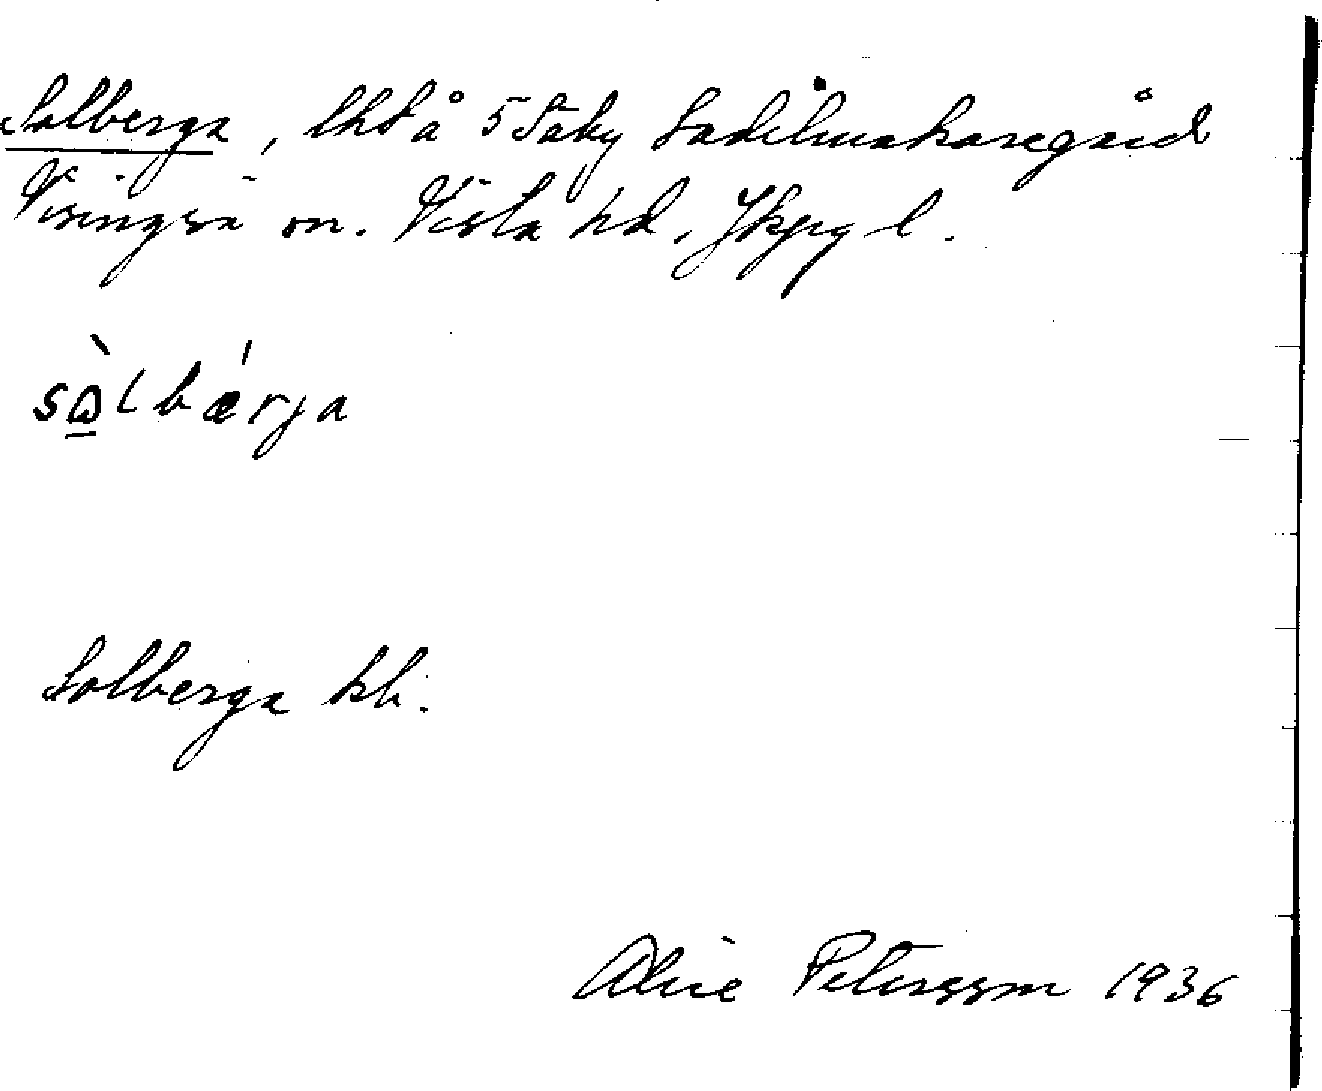 Solberga, lht å 5 Säby Sadelmakaregård
Visingsö sn. Vista hd, Jkpg l.
sὼlbǽrja
Solberga kb.
Alice Petersson 1936